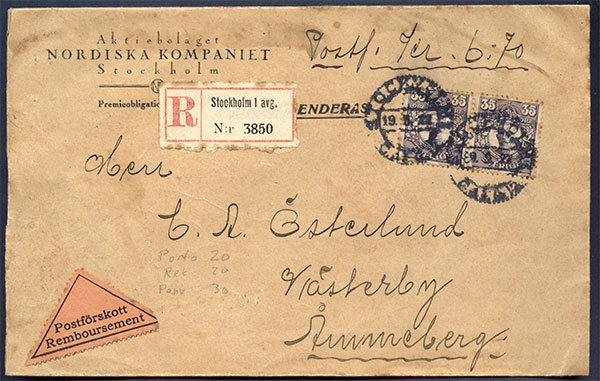 Aktiebolaget
NORDISKA KOMPANIET
Stockholm
Postf. Kr. 6.70
Premieobligation
ENDERAS
R
Stockholm 1 avg.
N:r 3850
35 35
STOCKHOLM
19
SVERIGE
Herr
C. A. Österlund
Porto 20
Rek 20
Panv 30
Västerby
Åmmeberg
Postförskott
Remboursement